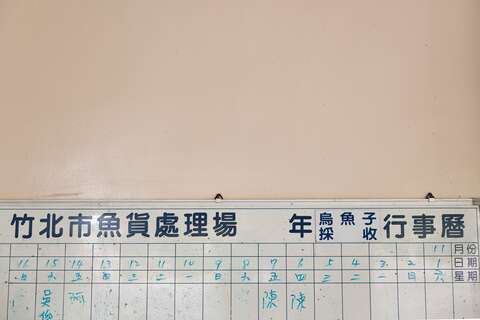 竹北市魚貨處理場 年 烏魚子採收 行事曆
11 月份
16 15 14 13 12 11 10 9 8 7 6 5 4 3 2 1 日期
日 六 五 四 三 二 一 日 六 五 四 三 二 一 日 六 星期
吳 陳 陳